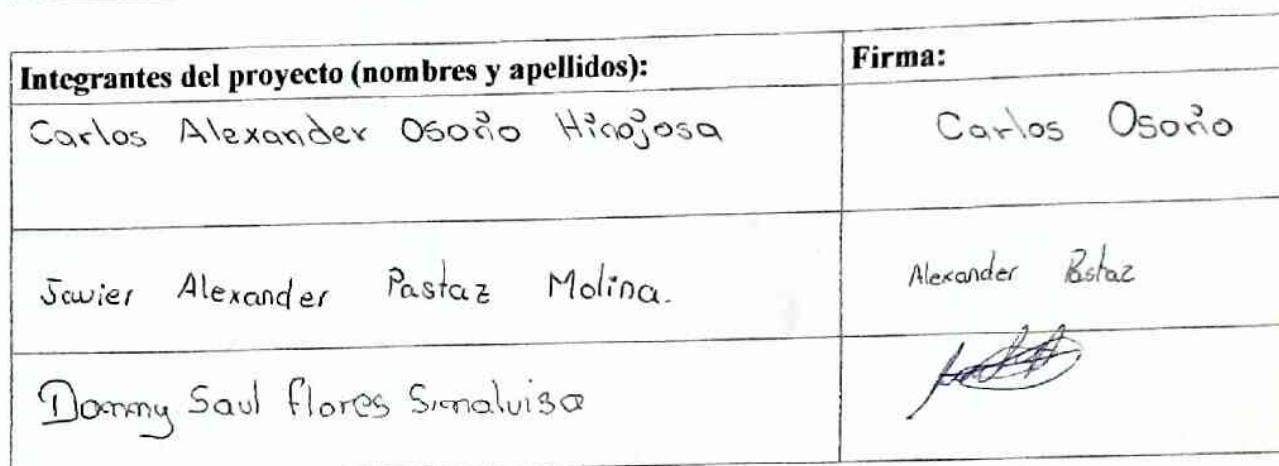 Integrantes del proyecto (nombres y apellidos): Firma:
Carlos Alexander Osorio Hinojosa Carlos Osorio
Javier Alexander Pastaz Molina. Alexander Pastaz
Danny Saul Flores Simaluisa